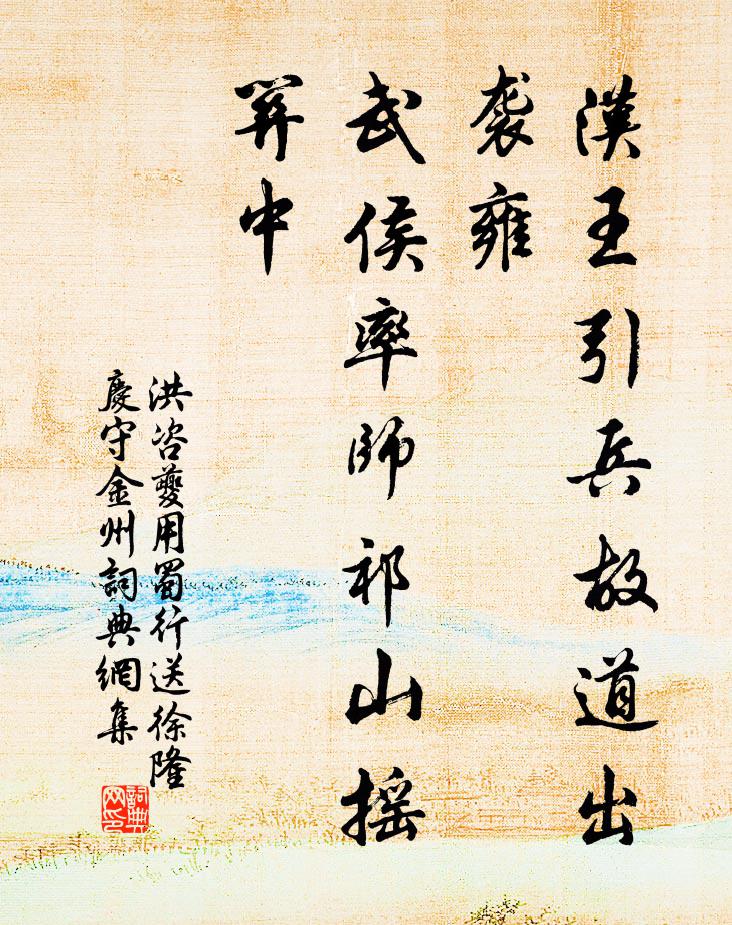 漢王引兵故道出
袭雍
武侯率師祁山摇
关中
洪咨夔用蜀行送徐隆
慶守金州詞典網集
詞典
网印